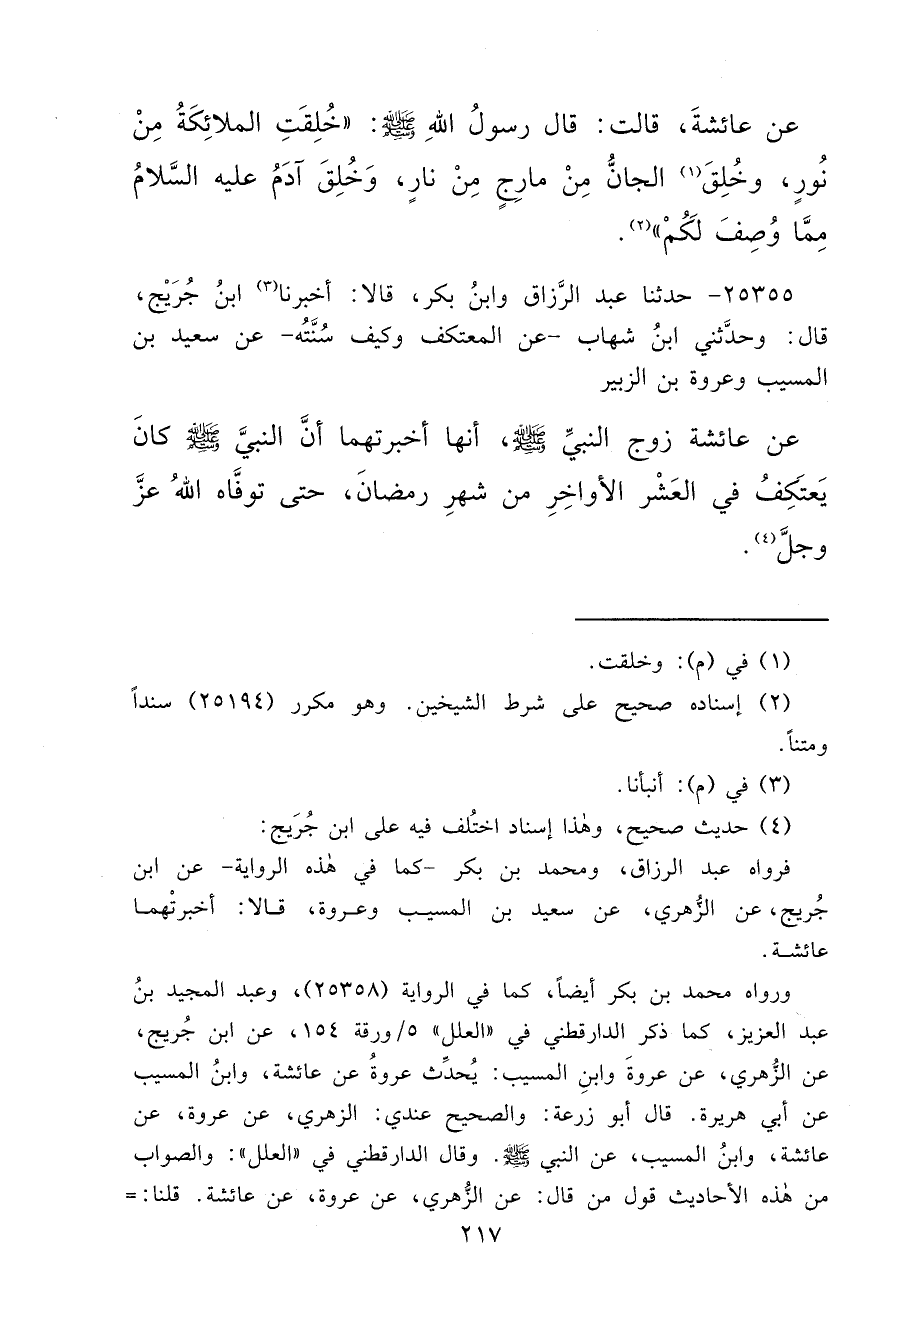 عن عائشةَ، قالت: قال رسولُ اللهِ ﷺ: «خُلِقَتِ الملائِكَةُ مِنْ
نُورٍ، وخُلِقَ(١) الجانُّ مِنْ مارِجٍ مِنْ نارٍ، وَخُلِقَ آدَمُ عليه السَّلامُ
مِمَّا وُصِفَ لَكُمْ»(٢).
٢٥٣٥٥- حدثنا عبد الرَّزاق وابنُ بكر، قالا: أخبرنا(٣) ابنُ جُرَيْج،
قال: وحدَّثني ابنُ شهاب -عن المعتكف وكيف سُنَّتُه- عن سعيد بن
المسيب وعروة بن الزبير
عن عائشة زوج النبيِّ ﷺ، أنها أخبرتهما أنَّ النبيَّ ﷺ كانَ
يَعتَكِفُ في العَشْر الأواخِرِ من شهرِ رمضانَ، حتى توفَّاه اللهُ عزَّ
وجلَّ(٤).
(١) في (م): وخلقت.
(٢) إسناده صحيح على شرط الشيخين. وهو مكرر (٢٥١٩٤) سنداً
ومتناً.
(٣) في (م): أنبأنا.
(٤) حديث صحيح، وهٰذا إسناد اختُلف فيه على ابن جُرَيج:
فرواه عبد الرزاق، ومحمد بن بكر -كما في هٰذه الرواية- عن ابن
جُريج، عن الزُّهري، عن سعيد بن المسيب وعروة، قالا: أخبرتْهما
عائشة.
ورواه محمد بن بكر أيضاً، كما في الرواية (٢٥٣٥٨)، وعبد المجيد بنُ
عبد العزيز، كما ذكر الدارقطني في «العلل» ٥/ورقة ١٥٤، عن ابن جُريج،
عن الزُّهري، عن عروةَ وابنِ المسيب: يُحدِّث عروةُ عن عائشة، وابنُ المسيب
عن أبي هريرة. قال أبو زرعة: والصحيح عندي: الزهري، عن عروة، عن
عائشة، وابنُ المسيب، عن النبي ﷺ. وقال الدارقطني في «العلل»: والصواب
من هٰذه الأحاديث قول من قال: عن الزُّهري، عن عروة، عن عائشة. قلنا: =
٢١٧